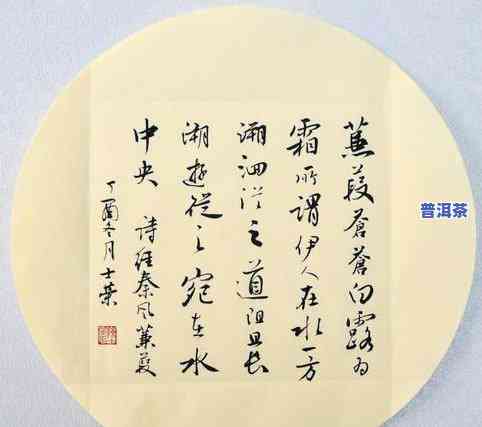 蒹葭蒼蒼白露为
霜所謂伊人在水一方
溯洄從之道阻且长
溯遊從之宛在水
中央 詩經秦风蒹葭
丁酉冬月士
普洱茶